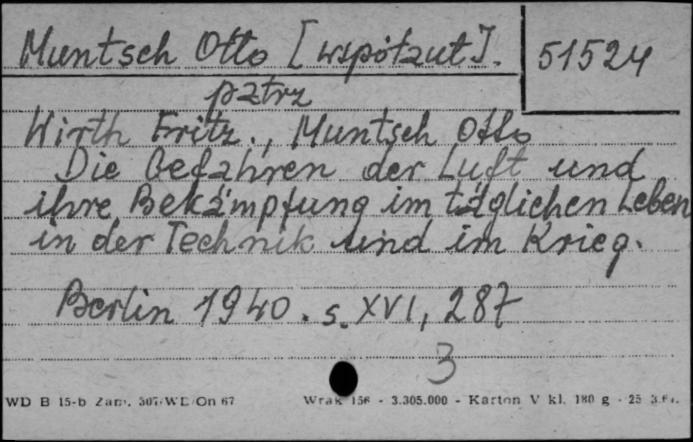 Muntsch Otto [współaut].
51524
patrz
Wirth Fritz., Muntsch Otto
Die Gefahren der Luft und
ihre Bekämpfung im täglichen Leben
in der Technik und im Krieg.
Berlin 1940. s. XVI, 287
3
WD B 15-b Zam. 307/WE/On 67 156 - 3.305.000 - Karton V kl. 180 g - 25